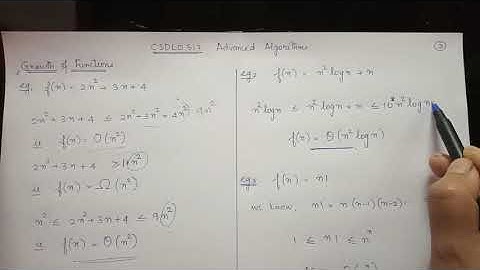 CSDLO517 Advanced Algorithms
Growth of Functions
eg: f(n) = 2n² + 3n + 4
2n² + 3n + 4 ≤ 2n² + 3n² + 4n² 9n²
f(n) = O(n²)
2n² + 3n + 4 ≥ 1·n²
f(n) = Ω(n²)
n² ≤ 2n² + 3n + 4 ≤ 9n²
f(n) = Θ(n²)
eg: f(n) = n² log n + n
n² log n ≤ n² log n + n ≤ 10 n² log n
f(n) = Θ(n² log n)
eg: f(n) = n!
we know, n! = n (n-1)(n-2)..
1 ≤ n! ≤ nⁿ